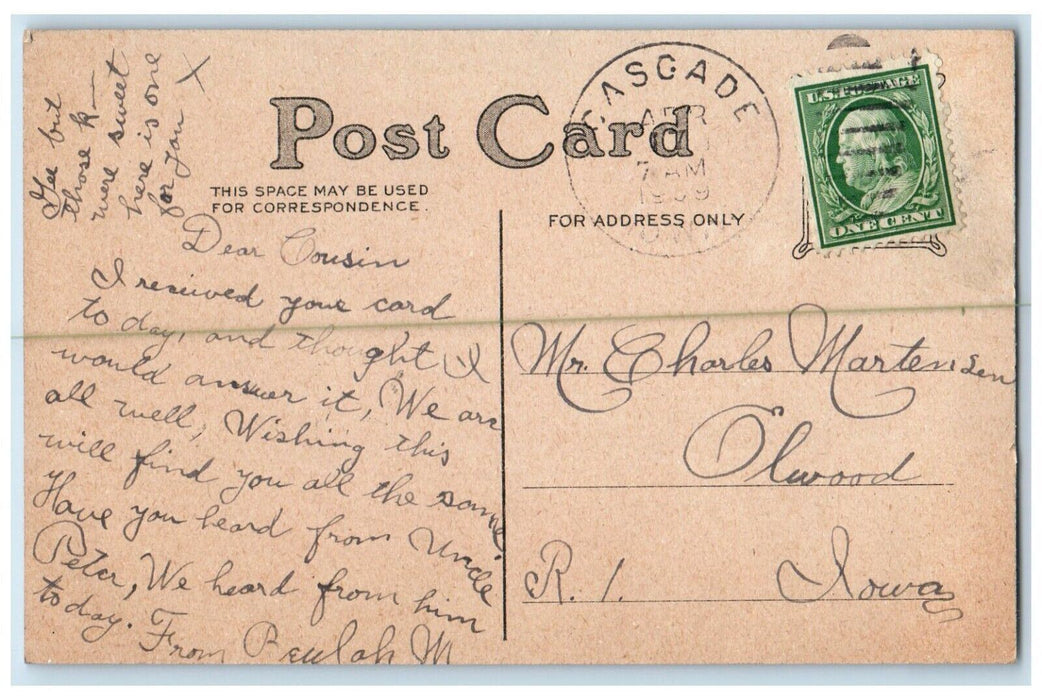 Gee but
those k—
were sweet
here is one
for you X
Post Card
THIS SPACE MAY BE USED
FOR CORRESPONDENCE.
FOR ADDRESS ONLY
CASCADE
APR
7 AM
1909
U.S. POSTAGE
ONE CENT
Dear Cousin
I received your card
to day, and thought I
would answer it, We are
all well, Wishing this
will find you all the same.
Have you heard from Uncle
Peter, We heard from him
today. From Beulah M
Mr. Charles Martensen
Olwood
R. 1. Iowa